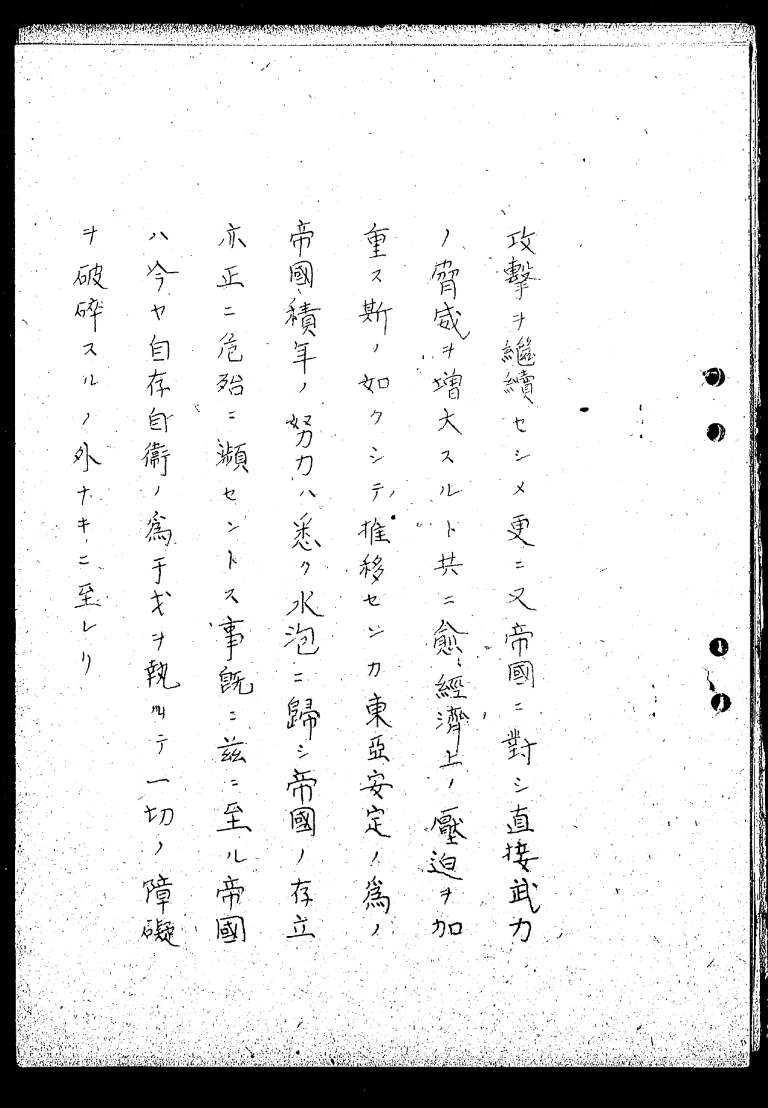 攻擊ヲ繼續セシメ更ニ又帝國ニ對シ直接武力
ノ脅威ヲ增大スルト共ニ愈〻經濟上ノ壓迫ヲ加
重ス斯ノ如クシテ推移センカ東亞安定ノ爲ノ
帝國積年ノ努力ハ悉ク水泡ニ歸シ帝國ノ存立
亦正ニ危殆ニ瀕セントス事旣ニ茲ニ至ル帝國
ハ今ヤ自存自衞ノ爲干戈ヲ執ツテ一切ノ障礙
ヲ破碎スルノ外ナキニ至レリ